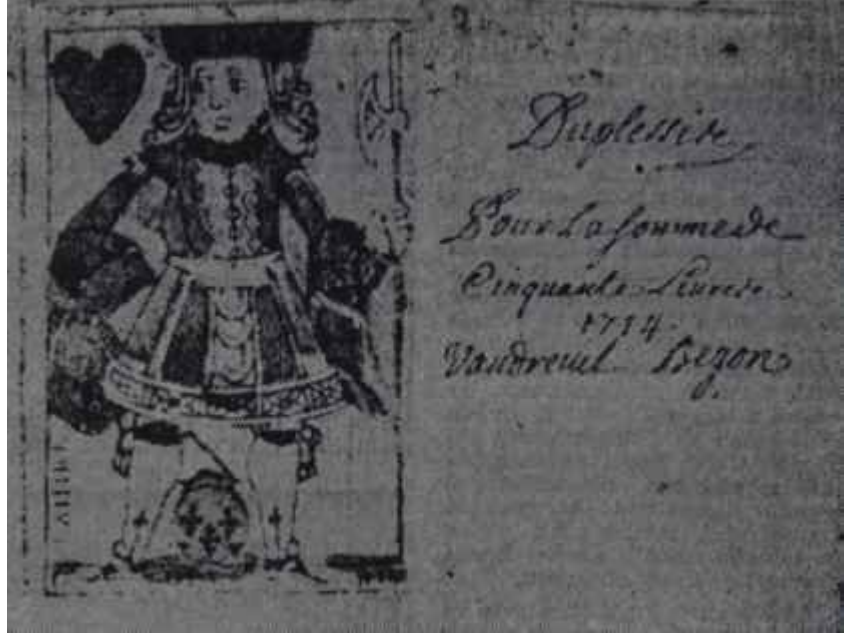 Duplessis
Pour La somme de
Cinquante Livres
1714
Vaudreuil Begon